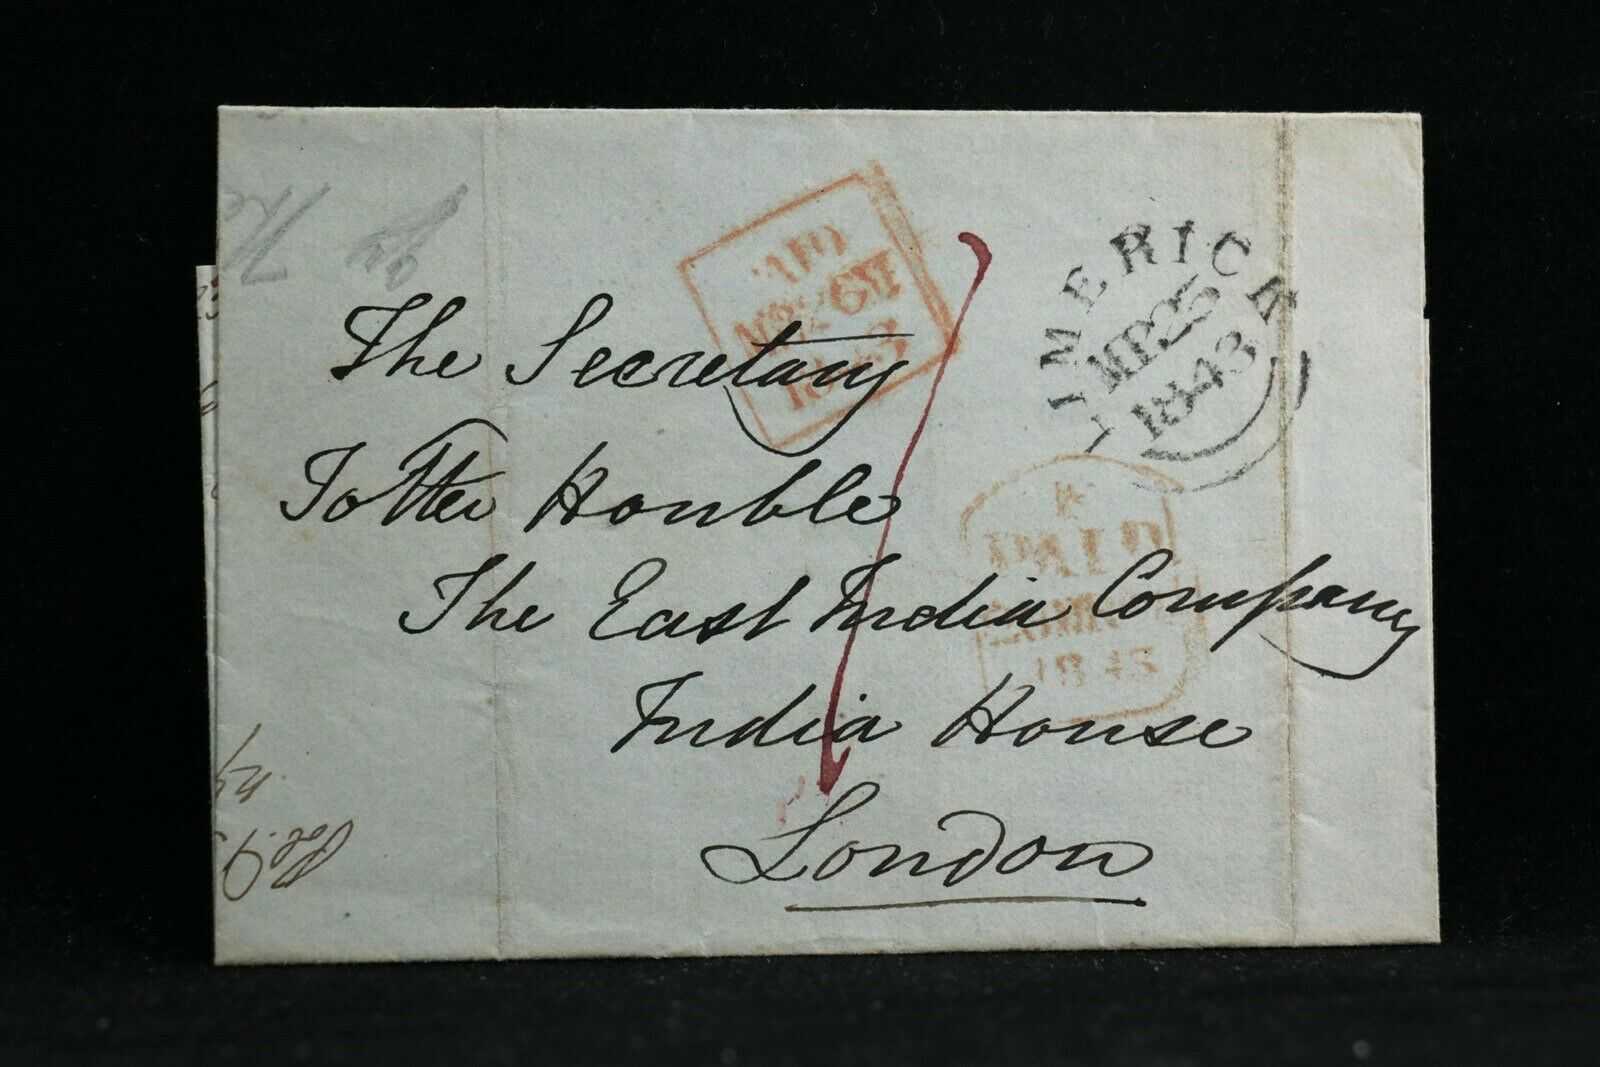 The Secretary
To the Honble
The East India Company
India House
London
LIMERICK
MR 25
1843
PAID
1843
PAID
1843
1